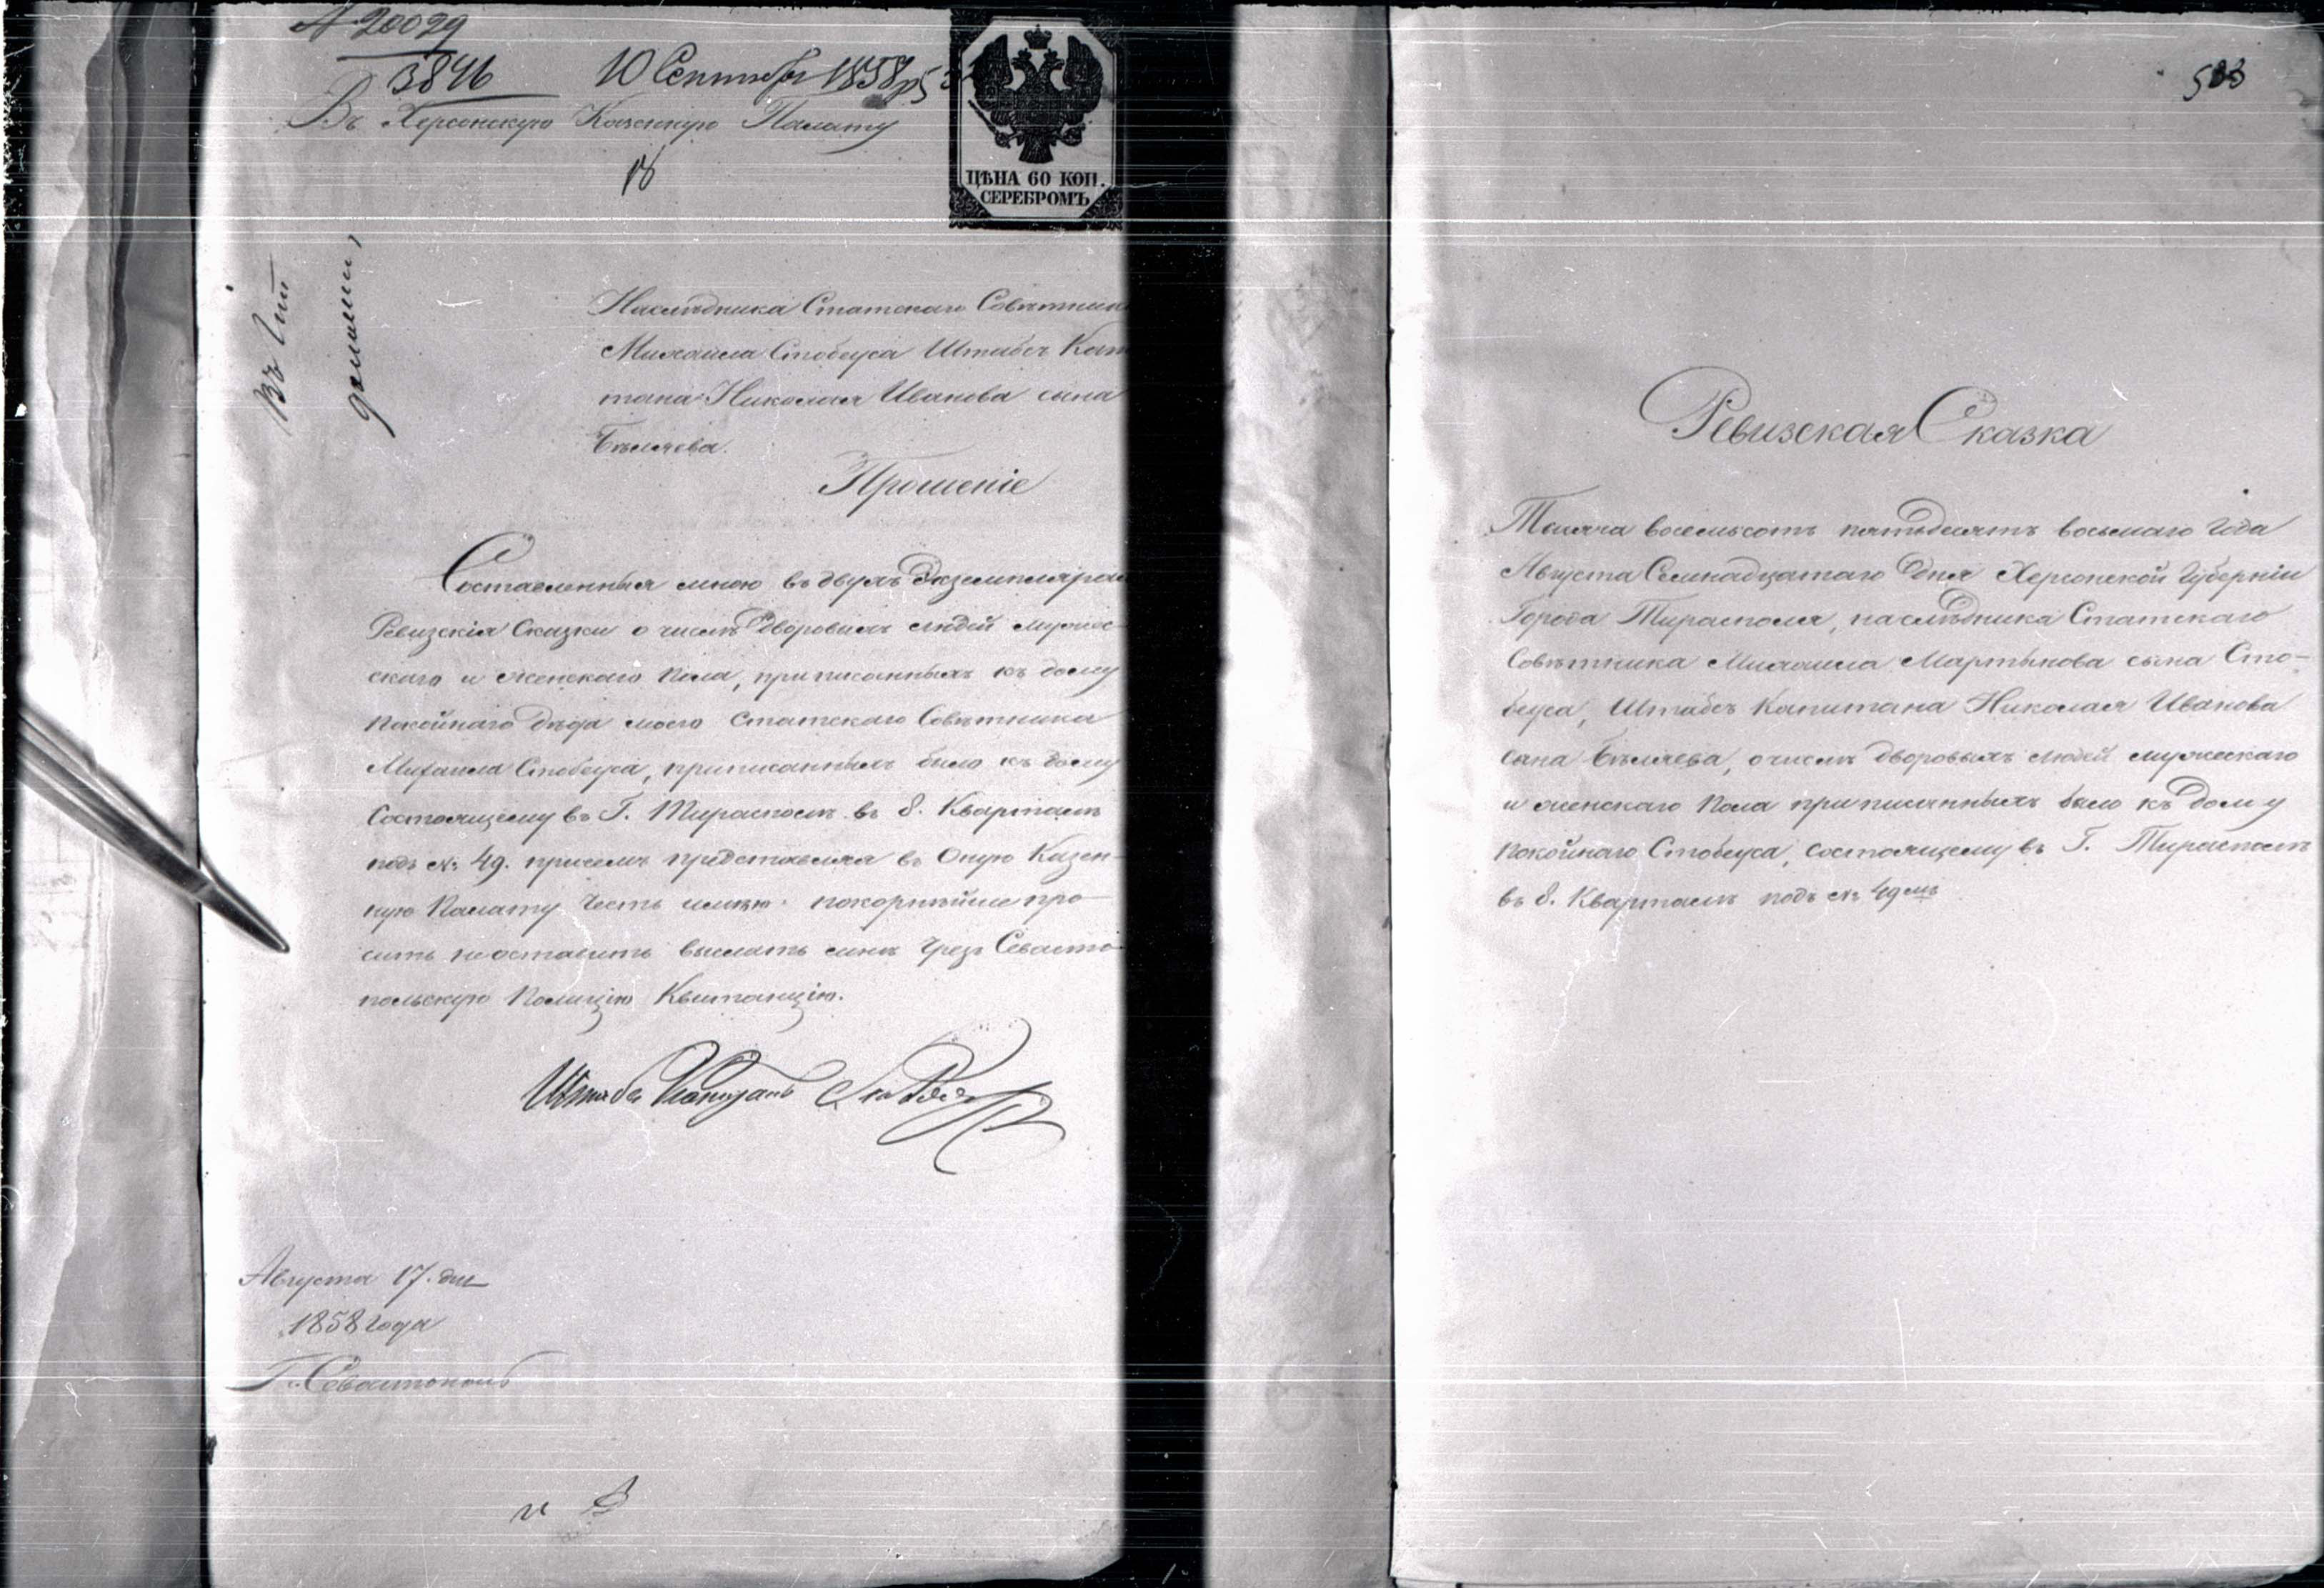 20029
3846
10 Сентября 1858
Въ Херсонскую Казенную Палату
ЦѢНА 60 КОП.
СЕРЕБРОМЪ
Наслѣдника Статскаго Совѣтника
Михаила Стобеуса Штабсъ Капи
тана Николая Иванова сына
Бѣляева.
Прошеніе
Составленныя мною въ двухъ Экземплярах
Ревизскія Сказки о числѣ Дворовыхъ людей мужес-
скаго и женскаго пола, приписанныхъ къ дому
покойнаго Дѣда моего Статскаго Совѣтника
Михаила Стобеуса, приписанныхъ было къ дому
состоящему въ Г. Тирасполѣ въ 8. Кварталѣ
подъ № 49. присемъ представляя въ Оную Казен-
ную Палату честь имѣю покорнѣйше про-
сить неоставить выслать мнѣ чрезъ Севасто-
польскую Полицію Квитанцію.
Штабсъ Капитанъ
Августа 17. дня
1858 года
Г. Севастополь
Ревизская Сказка
Тысяча восемьсотъ пятьдесятъ восьмаго года
Августа Семнадцатаго Дня Херсонской Губерніи
Города Тирасполя, наслѣдника Статскаго
Совѣтника Михаила Мартынова сына Сто-
беуса, Штабсъ Капитана Николая Иванова
сына Бѣляева, о числѣ дворовыхъ людей мужескаго
и женскаго пола приписанныхъ было къ Дому
покойнаго Стобеуса, состоящему въ Г. Тирасполѣ
въ 8. Кварталѣ подъ № 49мъ